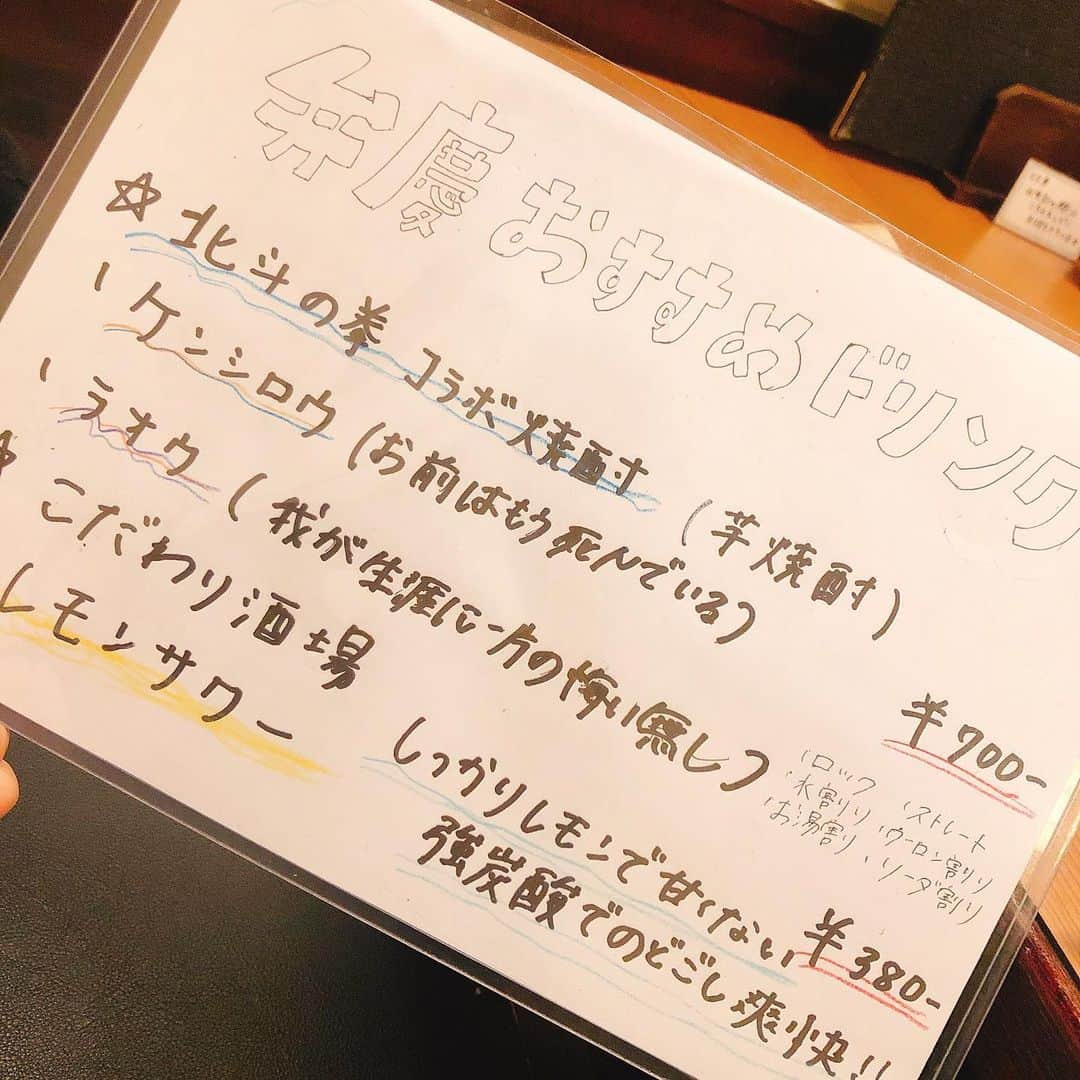 弁慶 おすすめドリンク
☆ 北斗の拳 コラボ焼酎 (芋焼酎)
、ケンシロウ (お前はもう死んでいる)
、ラオウ (我が生涯に一片の悔い無し)
¥700-
、ロック 、ストレート
、水割り 、ウーロン割り
、お湯割り 、ソーダ割り
☆ こだわり酒場
レモンサワー
しっかりレモンで甘くない
強炭酸でのどごし爽快!!
¥380-